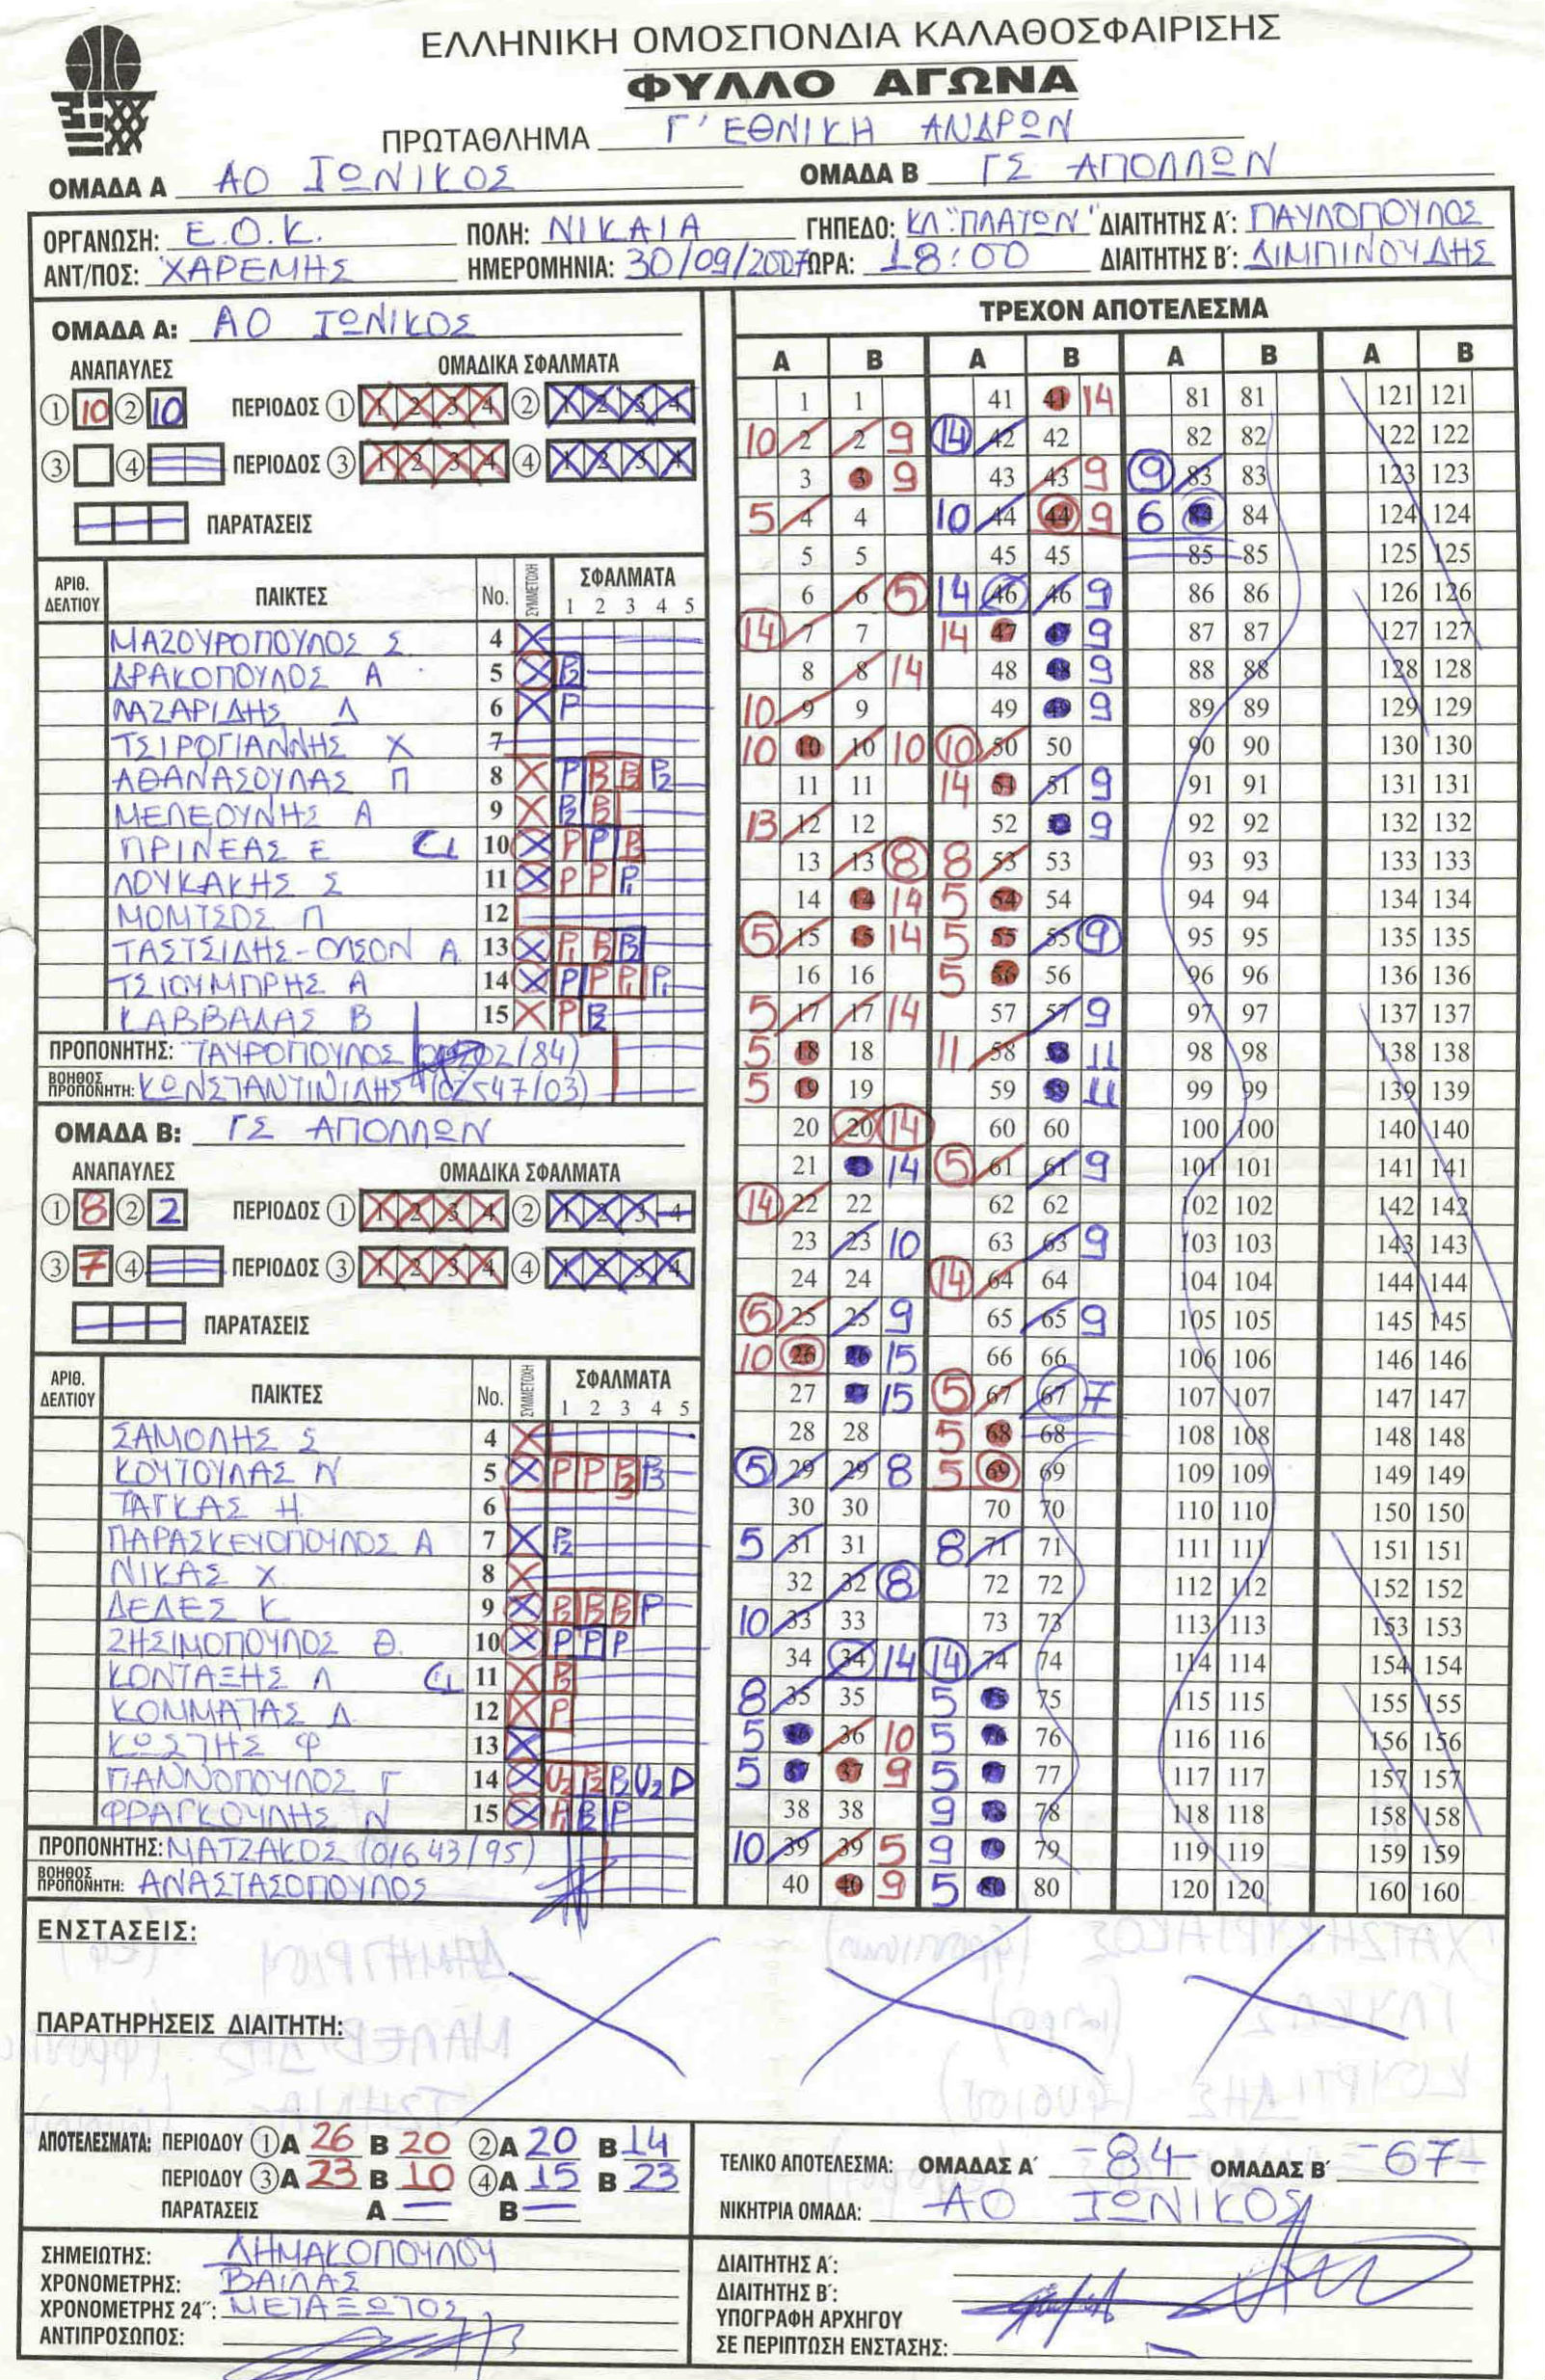 ΕΛΛΗΝΙΚΗ ΟΜΟΣΠΟΝΔΙΑ ΚΑΛΑΘΟΣΦΑΙΡΙΣΗΣ
ΦΥΛΛΟ ΑΓΩΝΑ
ΠΡΩΤΑΘΛΗΜΑ Γ' ΕΘΝΙΚΗ ΑΝΔΡΩΝ
ΟΜΑΔΑ Α ΑΟ ΙΩΝΙΚΟΣ ΟΜΑΔΑ Β ΓΣ ΑΠΟΛΛΩΝ
ΟΡΓΑΝΩΣΗ: Ε.Ο.Κ. ΠΟΛΗ: ΝΙΚΑΙΑ ΓΗΠΕΔΟ: ΚΛ "ΠΛΑΤΩΝ" ΔΙΑΙΤΗΤΗΣ Α΄: ΠΑΥΛΟΠΟΥΛΟΣ
ΑΝΤ/ΠΟΣ: ΧΑΡΕΜΗΣ ΗΜΕΡΟΜΗΝΙΑ: 30/09/2007 ΩΡΑ: 18:00 ΔΙΑΙΤΗΤΗΣ Β΄: ΛΙΜΠΙΝΟΥΔΗΣ
ΟΜΑΔΑ Α: ΑΟ ΙΩΝΙΚΟΣ
ΑΝΑΠΑΥΛΕΣ ΟΜΑΔΙΚΑ ΣΦΑΛΜΑΤΑ
① 10 ② 10 ΠΕΡΙΟΔΟΣ ① 1 2 3 4 ② 1 2 3 4
③ ④ ΠΕΡΙΟΔΟΣ ③ 1 2 3 4 ④ 1 2 3 4
ΠΑΡΑΤΑΣΕΙΣ
ΑΡΙΘ. ΔΕΛΤΙΟΥ ΠΑΙΚΤΕΣ No. ΣΥΜΜΕΤΟΧΗ ΣΦΑΛΜΑΤΑ 1 2 3 4 5
ΜΑΖΟΥΡΟΠΟΥΛΟΣ Σ 4 X
ΔΡΑΚΟΠΟΥΛΟΣ Α 5 X P2
ΛΑΖΑΡΙΔΗΣ Δ 6 X P
ΤΣΙΡΟΓΙΑΝΝΗΣ Χ 7
ΑΘΑΝΑΣΟΥΛΑΣ Π 8 X P P2 P2 P2
ΜΕΛΕΟΥΝΗΣ Α 9 X P2 P2
ΠΡΙΝΕΑΣ Ε CL 10 X P P P2
ΛΟΥΚΑΚΗΣ Σ 11 X P P P1
ΜΟΜΤΣΟΣ Π 12
ΤΑΣΤΣΙΔΗΣ-ΟΛΣΟΝ Α. 13 X P1 P2 P2
ΤΣΙΟΥΜΠΡΗΣ Α 14 X P P P1 P1
ΚΑΒΒΑΔΑΣ Β 15 X P P2
ΠΡΟΠΟΝΗΤΗΣ: ΤΑΥΡΟΠΟΥΛΟΣ
ΒΟΗΘΟΣ ΠΡΟΠΟΝΗΤΗ: ΚΩΝΣΤΑΝΤΙΝΙΔΗΣ (02547/03)
ΟΜΑΔΑ Β: ΓΣ ΑΠΟΛΛΩΝ
ΑΝΑΠΑΥΛΕΣ ΟΜΑΔΙΚΑ ΣΦΑΛΜΑΤΑ
① 8 ② 2 ΠΕΡΙΟΔΟΣ ① 1 2 3 4 ② 1 2 3 4
③ 7 ④ ΠΕΡΙΟΔΟΣ ③ 1 2 3 4 ④ 1 2 3 4
ΠΑΡΑΤΑΣΕΙΣ
ΑΡΙΘ. ΔΕΛΤΙΟΥ ΠΑΙΚΤΕΣ No. ΣΥΜΜΕΤΟΧΗ ΣΦΑΛΜΑΤΑ 1 2 3 4 5
ΣΑΜΟΛΗΣ Σ 4 X
ΚΟΥΤΟΥΛΑΣ Ν 5 X P P P2 P2
ΤΑΓΚΑΣ Η 6
ΠΑΡΑΣΚΕΥΟΠΟΥΛΟΣ Α 7 X P2
ΝΙΚΑΣ Χ 8 X
ΔΕΔΕΣ Κ 9 X P2 P2 P2 P
ΖΗΣΙΜΟΠΟΥΛΟΣ Θ. 10 X P P P
ΚΟΝΤΑΞΗΣ Λ CL 11 X P2
ΚΟΜΜΑΤΑΣ Δ. 12 X P
ΚΩΣΤΗΣ Φ 13 X
ΓΙΑΝΝΟΠΟΥΛΟΣ Γ 14 X U2 P2 P2 U2 D
ΦΡΑΓΚΟΥΛΗΣ Ν 15 X P1 P2 P
ΠΡΟΠΟΝΗΤΗΣ: ΜΑΤΖΑΚΟΣ (01643/95)
ΒΟΗΘΟΣ ΠΡΟΠΟΝΗΤΗ: ΑΝΑΣΤΑΣΟΠΟΥΛΟΣ
ΤΡΕΧΟΝ ΑΠΟΤΕΛΕΣΜΑ
Α Β Α Β Α Β Α Β
1 1 41 41 14 81 81 121 121
10 2 2 9 14 42 42 82 82 122 122
3 3 9 43 43 9 9 83 83 123 123
5 4 4 10 44 44 9 6 84 84 124 124
5 5 45 45 85 85 125 125
6 6 5 14 46 46 9 86 86 126 126
14 7 7 14 47 47 9 87 87 127 127
8 8 14 48 48 9 88 88 128 128
10 9 9 49 49 9 89 89 129 129
10 10 10 10 10 50 50 90 90 130 130
11 11 14 51 51 9 91 91 131 131
13 12 12 52 52 9 92 92 132 132
13 13 8 8 53 53 93 93 133 133
14 14 14 5 54 54 94 94 134 134
5 15 15 14 5 55 55 9 95 95 135 135
16 16 5 56 56 96 96 136 136
5 17 17 14 57 57 9 97 97 137 137
5 18 18 11 58 58 11 98 98 138 138
5 19 19 59 59 11 99 99 139 139
20 20 14 60 60 100 100 140 140
21 21 14 5 61 61 9 101 101 141 141
14 22 22 62 62 102 102 142 142
23 23 10 63 63 9 103 103 143 143
24 24 14 64 64 104 104 144 144
5 25 25 9 65 65 9 105 105 145 145
10 26 26 15 66 66 106 106 146 146
27 27 15 5 67 67 7 107 107 147 147
28 28 5 68 68 108 108 148 148
5 29 29 8 5 69 69 109 109 149 149
30 30 70 70 110 110 150 150
5 31 31 8 71 71 111 111 151 151
32 32 8 72 72 112 112 152 152
10 33 33 73 73 113 113 153 153
34 34 14 14 74 74 114 114 154 154
8 35 35 5 75 75 115 115 155 155
5 36 36 10 5 76 76 116 116 156 156
5 37 37 9 5 77 77 117 117 157 157
38 38 9 78 78 118 118 158 158
10 39 39 5 9 79 79 119 119 159 159
40 40 9 5 80 80 120 120 160 160
ΕΝΣΤΑΣΕΙΣ:
ΠΑΡΑΤΗΡΗΣΕΙΣ ΔΙΑΙΤΗΤΗ:
ΑΠΟΤΕΛΕΣΜΑΤΑ: ΠΕΡΙΟΔΟΥ ① Α 26 Β 20 ② Α 20 Β 14
ΠΕΡΙΟΔΟΥ ③ Α 23 Β 10 ④ Α 15 Β 23
ΠΑΡΑΤΑΣΕΙΣ Α — Β —
ΤΕΛΙΚΟ ΑΠΟΤΕΛΕΣΜΑ: ΟΜΑΔΑΣ Α΄ -84- ΟΜΑΔΑΣ Β΄ -67-
ΝΙΚΗΤΡΙΑ ΟΜΑΔΑ: ΑΟ ΙΩΝΙΚΟΣ
ΣΗΜΕΙΩΤΗΣ: ΔΗΜΑΚΟΠΟΥΛΟΥ
ΧΡΟΝΟΜΕΤΡΗΣ: ΒΑΙΛΑΣ
ΧΡΟΝΟΜΕΤΡΗΣ 24΄΄: ΜΕΤΑΞΩΤΟΣ
ΑΝΤΙΠΡΟΣΩΠΟΣ:
ΔΙΑΙΤΗΤΗΣ Α΄:
ΔΙΑΙΤΗΤΗΣ Β΄:
ΥΠΟΓΡΑΦΗ ΑΡΧΗΓΟΥ
ΣΕ ΠΕΡΙΠΤΩΣΗ ΕΝΣΤΑΣΗΣ: —